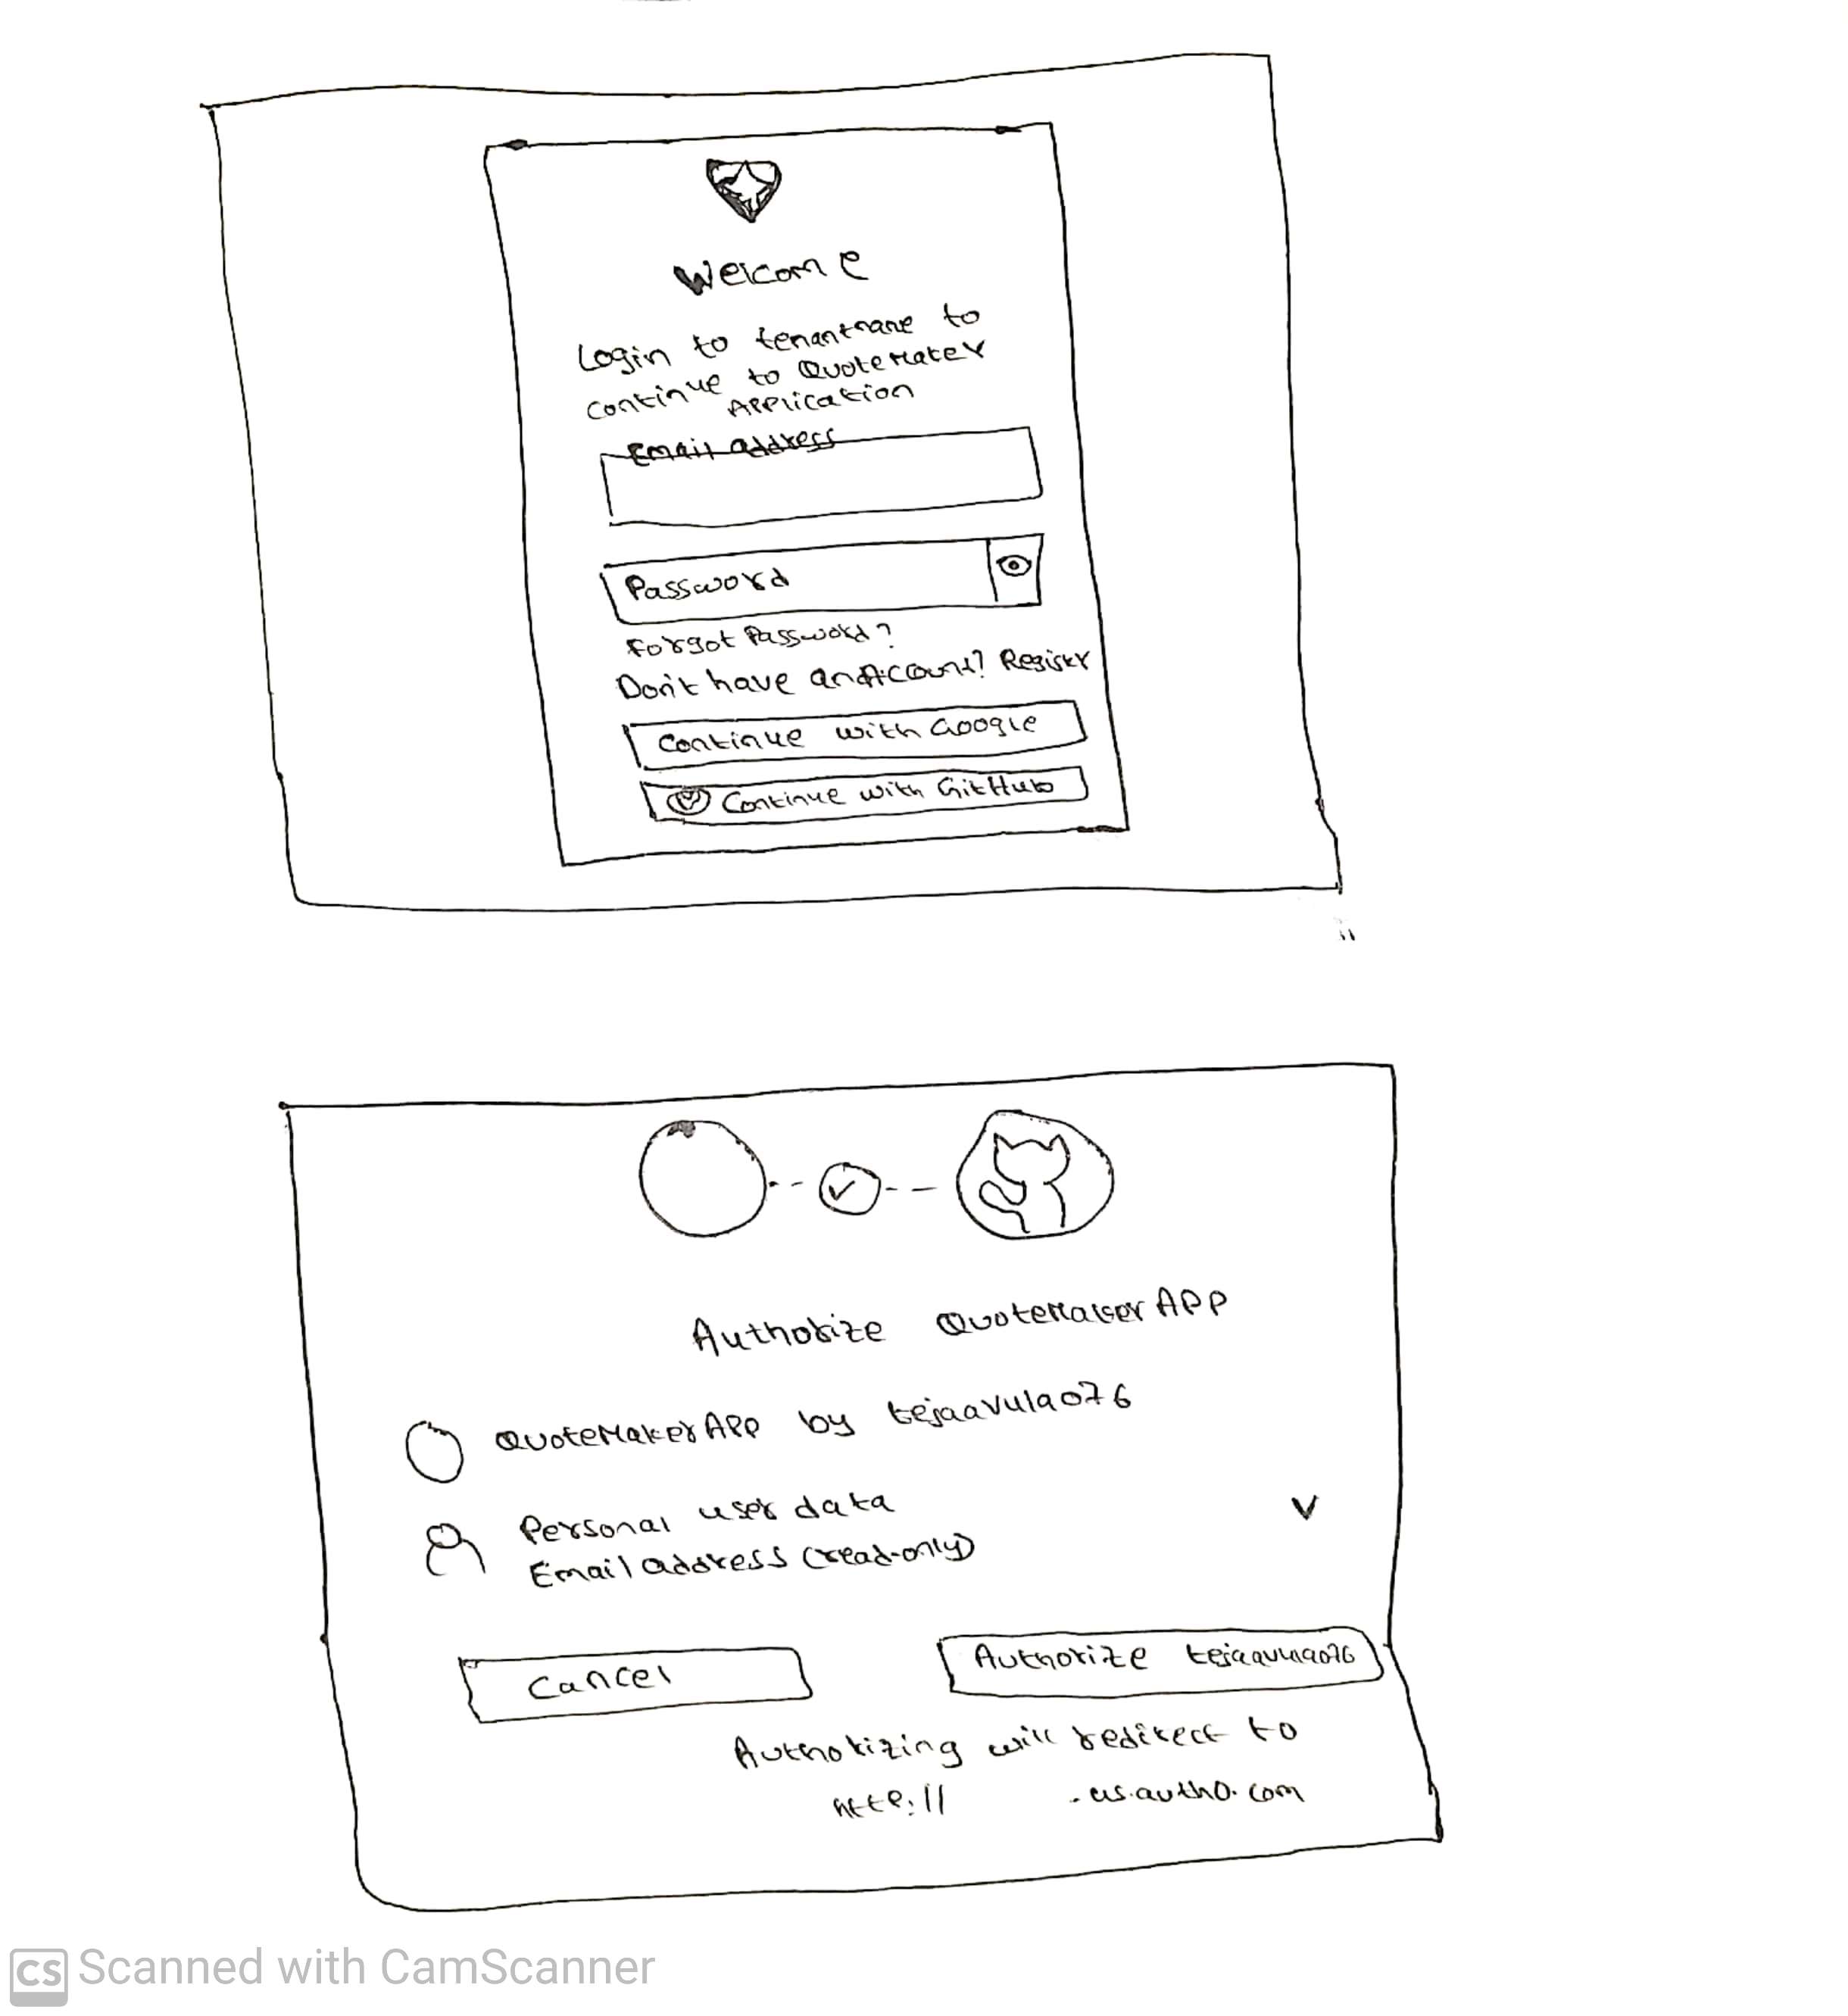 Welcome
Login to tenantname to
continue to QuoteMaker
Application
Email address
Password
Forgot Password?
Don't have an Account? Register
Continue with Google
Continue with GitHub
Authorize QuoteMakerApp
QuoteMakerApp by tejaavula076
Personal user data
Email address (read-only)
Cancel
Authorize tejaavula076
Authorizing will redirect to
http://        .us.auth0.com
CS Scanned with CamScanner